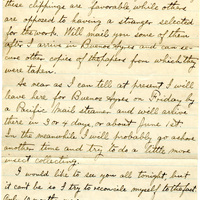 these clippings are favorable while others
are opposed to having a stranger selected
for the work. Will mail you some of them
after I arrive in Buenos Ayres and can se-
cure other copies of the papers from which they
were taken.
As near as I can tell at present I will
leave here for Buenos Ayres on Friday by
a Pacific Mail steamer and will arrive
there in 3 or 4 days, or about June 1st.
In the meanwhile I will probably go ashore
another time and try to do a little more
insect collecting.
I would like to see you all tonight, but
it cant be so I try to reconcile myself to the fact